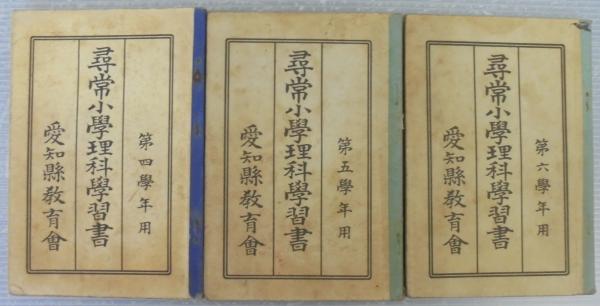 第四學年用
尋常小學理科學習書
愛知縣敎育會
第五學年用
尋常小學理科學習書
愛知縣敎育會
第六學年用
尋常小學理科學習書
愛知縣敎育會